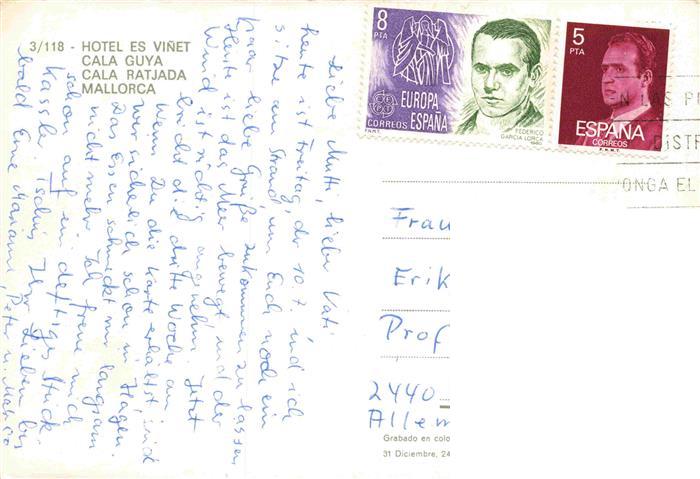 3/118 - HOTEL ES VIÑET
CALA GUYA
CALA RATJADA
MALLORCA
Liebe Mutti, lieber Vati
heute ist Freitag, der 10.7. und ich
sitze am Strand um Euch noch ein
paar liebe Grüße zukommen zu lassen.
Heute ist das Meer bewegt und der
Wind ist richtig angenehm. Jetzt
bricht die dritte Woche an
Wenn Du die Karte erhältst, sind
wir sicherlich schon in Hagen.
Das Essen schmeckt mir langsam
nicht mehr. Ich freue mich
schon auf ein deftiges Stück
Kassler. Tschüs Ihr Lieben bis
bald Eure Mariann, Peter u.
8
PTA
EUROPA
CORREOS ESPAÑA
F.N.M.T.
FEDERICO
GARCIA LORCA
1980
5
PTA
ESPAÑA
CORREOS
F.N.M.T.
ONGA EL
Frau
Erik
Prof
2440
Allem
Grabado en colo
31 Diciembre, 24